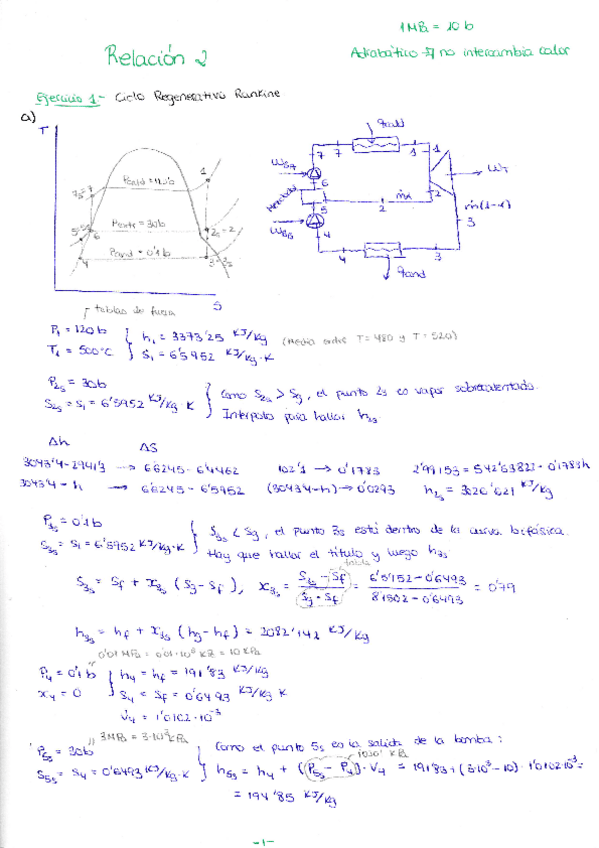 1 MPa = 10 b
Relación 2
Adiabático → no intercambia calor
Ejercicio 1.- Ciclo Regenerativo Rankine
a)
T
Pcald = 120 b
Pextr = 30 b
Pcond = 0'1 b
S
qcald
WT
Mezclador
ṁ(1-α)
qcond
tablas de fuera
P₁ = 120 b
T₁ = 500°C
h₁ = 3373'25 KJ/Kg (Media entre T = 480 y T = 520)
S₁ = 6'5952 KJ/Kg·K
P₂s = 30 b
S₂s = S₁ = 6'5952 KJ/Kg·K
Como S₂s > Sg, el punto 2s es vapor sobrecalentado.
Interpolo para hallar h₂s
Δh ΔS
3043'4 - 2941'3 → 6'6245 - 6'4462 102'1 → 0'1783 2'99153 = 542'63822 - 0'1783h
3043'4 - h → 6'6245 - 6'5952 (3043'4-h) → 0'0293 h₂s = 3026'621 KJ/Kg
P₃s = 0'1 b
S₃s = S₁ = 6'5952 KJ/Kg·K
S₃s < Sg, el punto 3s está dentro de la curva bifásica.
Hay que hallar el título y luego h₃s
S₃s = Sf + x₃s (Sg - Sf), x₃s = (S₃s - Sf)/(Sg - Sf) = (6'5152 - 0'6493)/(8'1502 - 0'6493) = 0'79
h₃s = hf + x₃s (hg - hf) = 2082'142 KJ/Kg
0'01 MPa = 0'01·10³ KPa = 10 KPa
P₄ = 0'1 b
x₄ = 0
h₄ = hf = 191'83 KJ/Kg
S₄ = Sf = 0'6493 KJ/Kg K
V₄ = 1'0102·10⁻³
3 MPa = 3·10³ KPa
P₅s = 30 b
S₅s = S₄ = 0'6493 KJ/Kg·K
Como el punto 5s es la salida de la bomba:
h₅s = h₄ + (P₅s - P₄)·V₄ = 191'83 + (3·10³ - 10)·1'0102·10⁻³ =
= 194'85 KJ/Kg
-1-